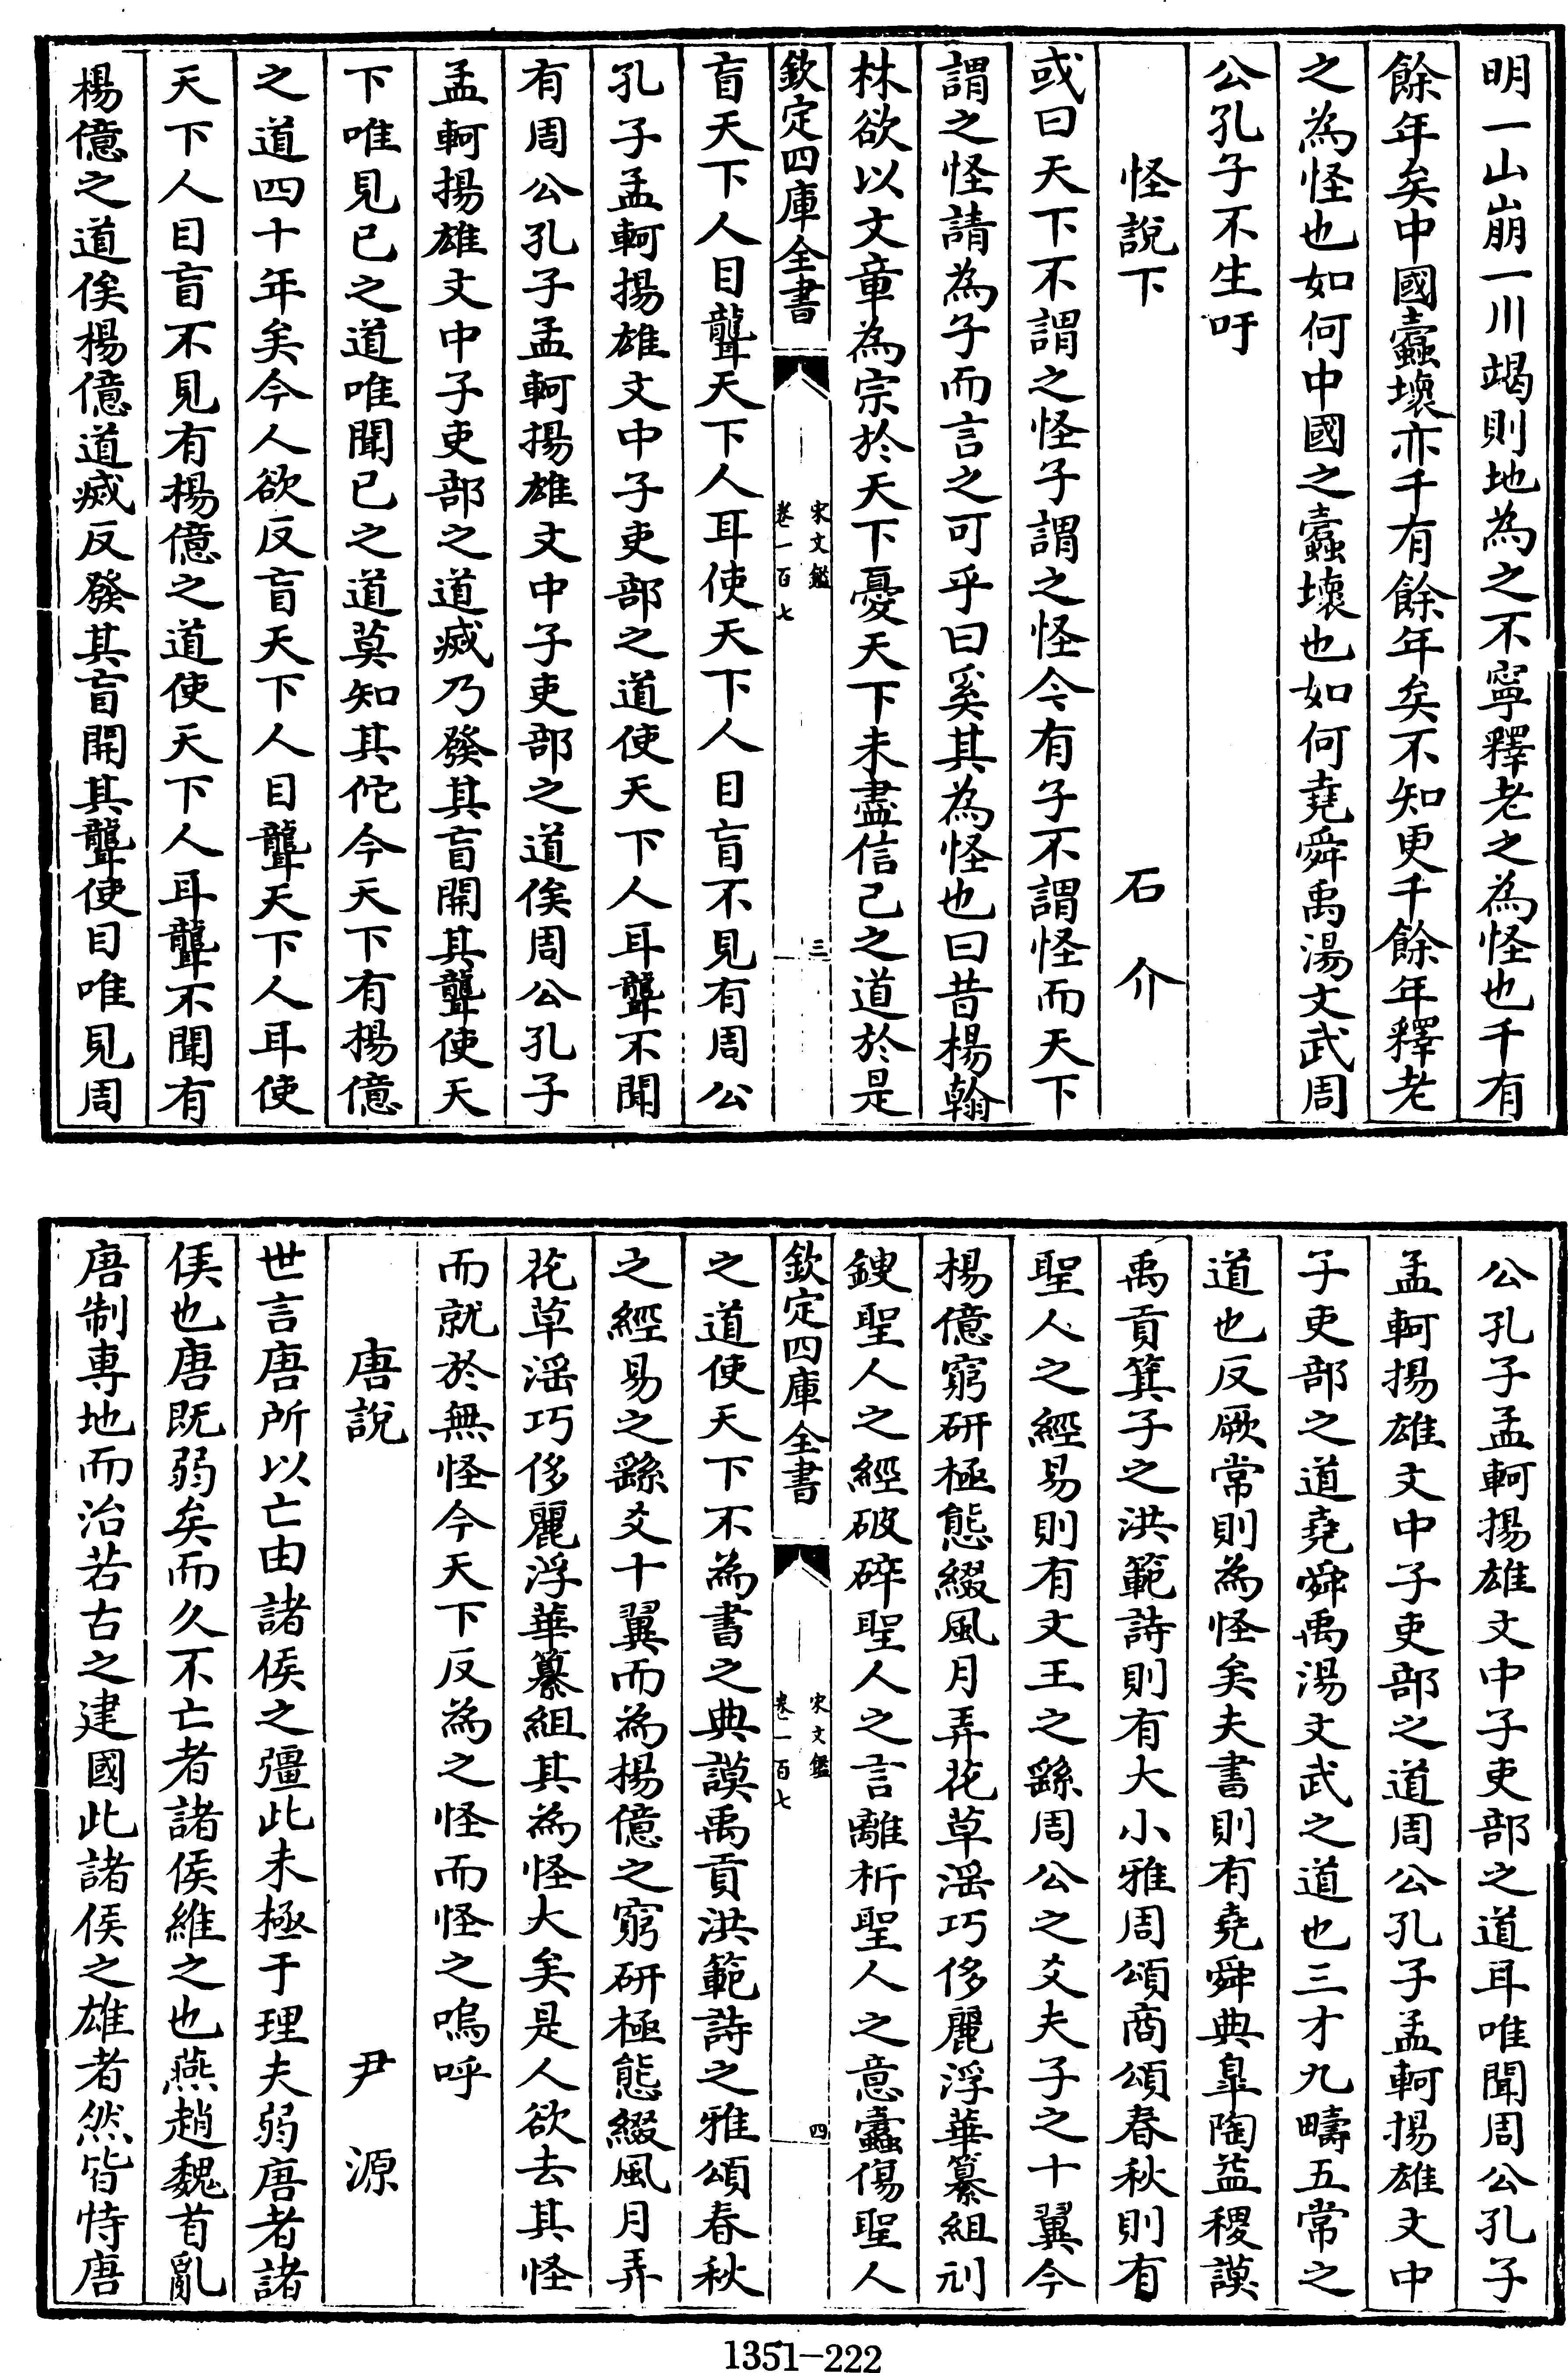 明一山崩一川竭則地為之不寧釋老之為怪也千有
餘年矣中國蠧壞亦千有餘年矣不知更千餘年釋老
之為怪也如何中國之蠧壞也如何堯舜禹湯文武周
公孔子不生吁
怪說下 石介
或曰天下不謂之怪子謂之怪今有子不謂怪而天下
謂之怪請為子而言之可乎曰奚其為怪也曰昔楊翰
林欲以文章為宗於天下憂天下未盡信己之道於是
欽定四庫全書 宋文鑑 卷一百七 三
盲天下人目聾天下人耳使天下人目盲不見有周公
孔子孟軻揚雄文中子吏部之道使天下人耳聾不聞
有周公孔子孟軻揚雄文中子吏部之道俟周公孔子
孟軻揚雄文中子吏部之道滅乃發其盲開其聾使天
下唯見已之道唯聞已之道莫知其佗今天下有楊億
之道四十年矣今人欲反盲天下人目聾天下人耳使
天下人目盲不見有楊億之道使天下人耳聾不聞有
楊億之道俟楊億道滅反發其盲開其聾使目唯見周
公孔子孟軻揚雄文中子吏部之道耳唯聞周公孔子
孟軻揚雄文中子吏部之道周公孔子孟軻揚雄文中
子吏部之道堯舜禹湯文武之道也三才九疇五常之
道也反厥常則為怪矣夫書則有堯舜典臯陶益稷謨
禹貢箕子之洪範詩則有大小雅周頌商頌春秋則有
聖人之經易則有文王之繇周公之爻夫子之十翼今
楊億窮研極態綴風月弄花草滛巧侈麗浮華纂組刓
鎪聖人之經破碎聖人之言離析聖人之意蠧傷聖人
欽定四庫全書 宋文鑑 卷一百七 四
之道使天下不為書之典謨禹貢洪範詩之雅頌春秋
之經易之繇爻十翼而為楊億之窮研極態綴風月弄
花草滛巧侈麗浮華纂組其為怪大矣是人欲去其怪
而就於無怪今天下反為之怪而怪之嗚呼
唐說 尹源
世言唐所以亡由諸侯之彊此未極于理夫弱唐者諸
侯也唐既弱矣而久不亡者諸侯維之也燕趙魏首亂
唐制専地而治若古之建國此諸侯之雄者然皆恃唐
1351-222